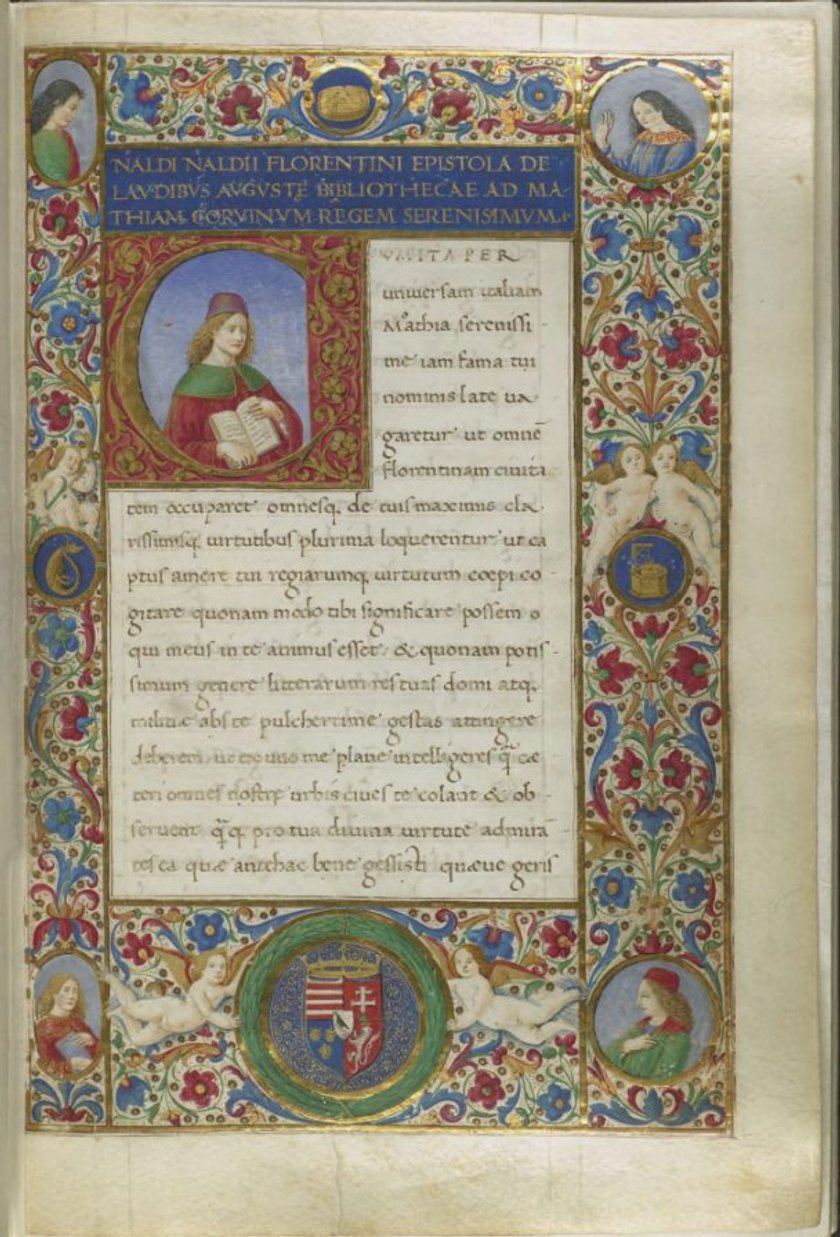 NALDI NALDII FLORENTINI EPISTOLA DE
LAVDIBVS AVGVSTE BIBLIOTHECAE AD MA-
THIAM CORVINVM REGEM SERENISIMVM
ITA PER
universam italiam
Mathia serenissi-
me iam fama tui
nominis late va
garetur ut omnē
florentinam civita
tem occuparet omnesq, de tuis maximis cla-
rissimisq, virtutibus plurima loquerentur ut ca
ptus amore tui regiarumq, virtutum coepi co-
gitare quonam modo tibi significare possem
qui meus in te animus esset & quonam potis-
simum genere litterarum res tuas domi atq,
militiæ abs te pulcherrime gestas attingere
deberem ut ex uno me plane intelligeres q̄ cæ
teri omnes nostre urbis cives te colant & ob-
servent q̄q, pro tua divina virtute admirā
tes ea quæ antehac bene gessisti quæve geris